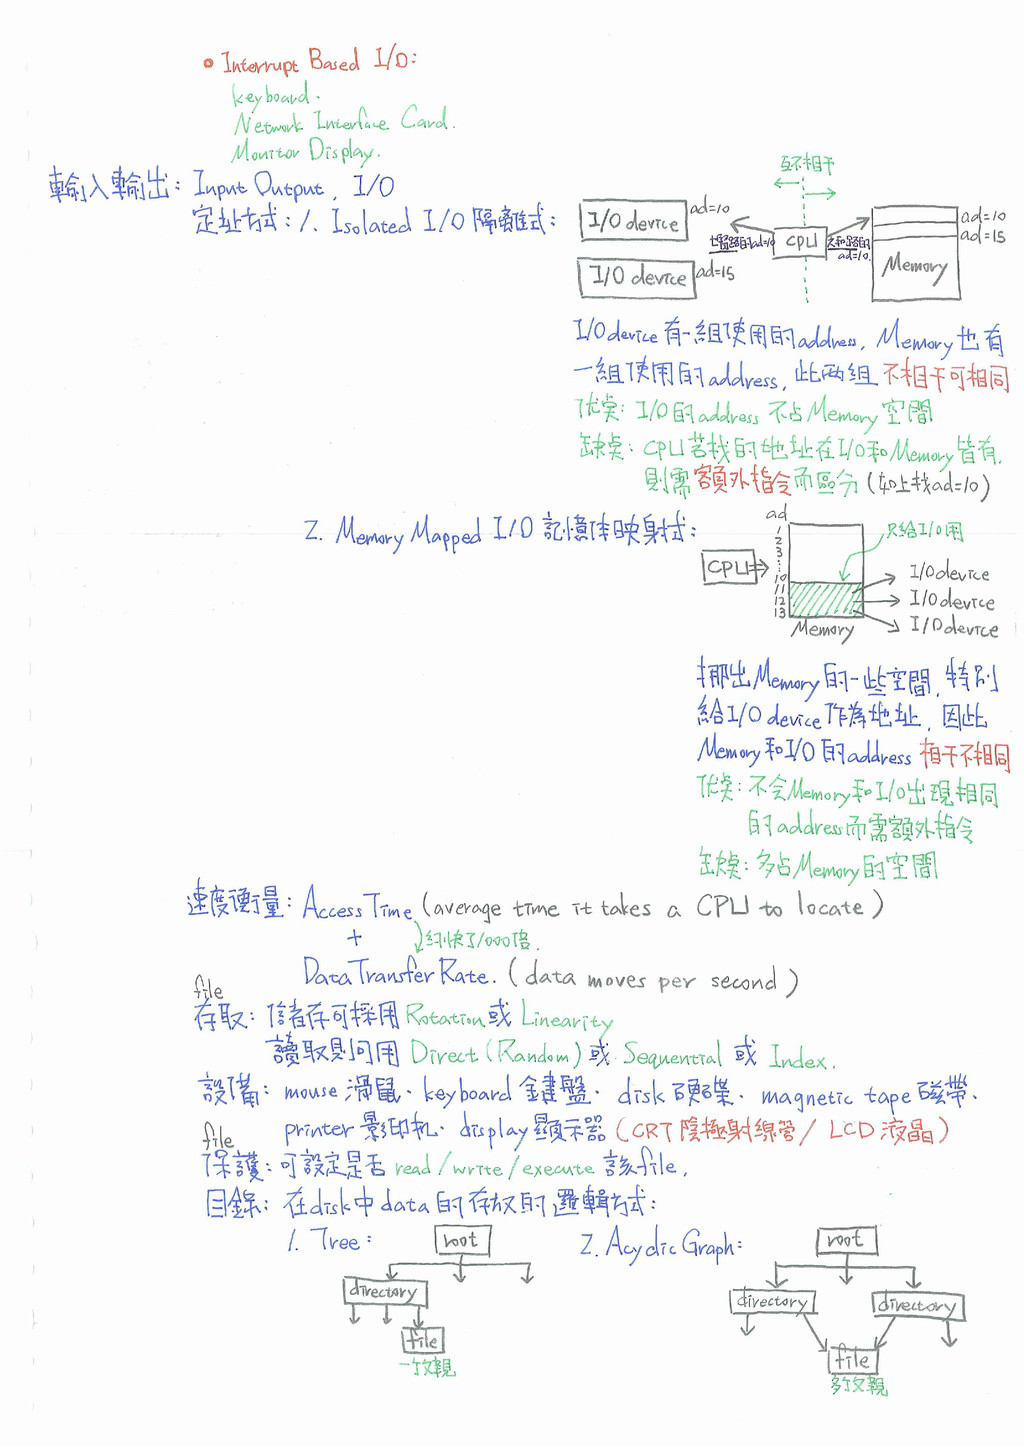 • Interrupt Based I/O:
keyboard.
Network Interface Card.
Monitor Display.
輸入輸出: Input Output, I/O
定址方式: 1. Isolated I/O 隔離式:
互不相干
I/O device ad=10
I/O device ad=15
CPU
ad=10
ad=15
Memory
I/O device 有一組使用的address, Memory也有
一組使用的address, 此两組 不相干可相同
优点: I/O的address 不占Memory空間
缺点: CPU若找的地址在I/O和Memory皆有,
則需額外指令而區分 (如上找ad=10)
2. Memory Mapped I/O 記憶体映射式:
ad
1
2
3
⋮
10
11
12
13
CPU
只給I/O用
I/O device
I/O device
I/O device
Memory
挪出Memory的一些空間,特別
給I/O device作為地址, 因此
Memory和I/O的address 相干不相同
优点: 不会Memory和I/O出現相同
的address而需額外指令
缺点: 多占Memory的空間
速度衡量: Access Time (average time it takes a CPU to locate)
+ 約快了1000倍.
Data Transfer Rate. (data moves per second)
file
存取: 儲存可採用Rotation或 Linearity
讀取則可用 Direct (Random) 或 Sequential 或 Index.
設備: mouse 滑鼠、keyboard 鍵盤、disk 硬碟、magnetic tape 磁帶、
printer 影印机、display 顯示器 (CRT 陰極射線管 / LCD 液晶)
file
保護: 可設定是否 read/write/execute 該file.
目錄: 在disk中data的存放的邏輯方式:
1. Tree:
root
directory
file
一个父親
2. Acyclic Graph:
root
directory
directory
file
多个父親